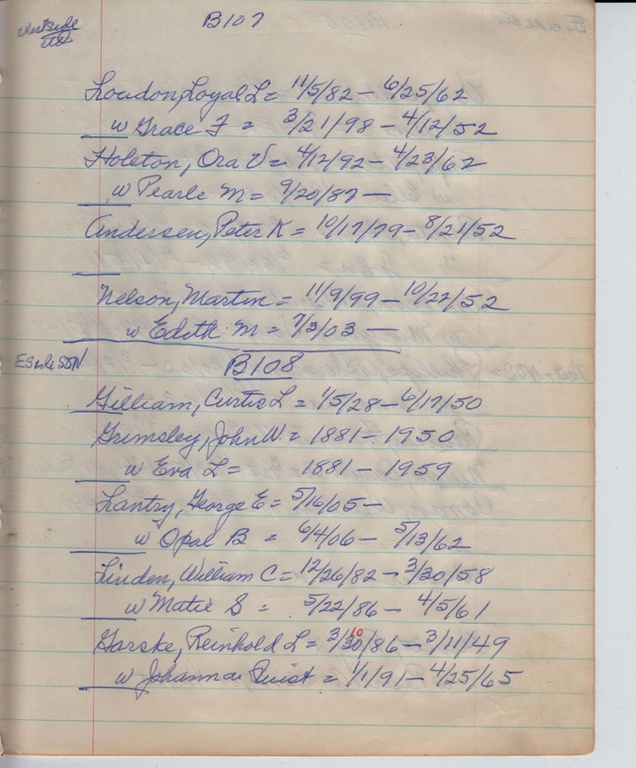 B107
West side
Loudon, Loyal L = 11/5/82 - 6/25/62
w Grace F = 3/21/98 - 4/12/52
Holston, Ora V = 4/12/92 - 4/23/62
w Pearle M = 9/20/87 -
Andersen, Peter K = 10/17/79 - 8/21/52
Nelson, Martin = 11/9/99 - 10/22/52
w Edith M = 7/3/03 -
B108
E side S & N
Gilliam, Curtis L = 1/5/28 - 6/17/50
Grimsley, John W. = 1881 - 1950
w Eva L = 1881 - 1959
Lantry, George E = 5/16/05 -
w Opal B = 6/4/06 - 5/13/62
Linden, William C = 12/26/82 - 3/30/58
w Matie S = 5/22/86 - 4/5/61
Garske, Reinhold L = 3/10/86 - 3/11/49
w Johanna Quist = 1/1/91 - 4/25/65